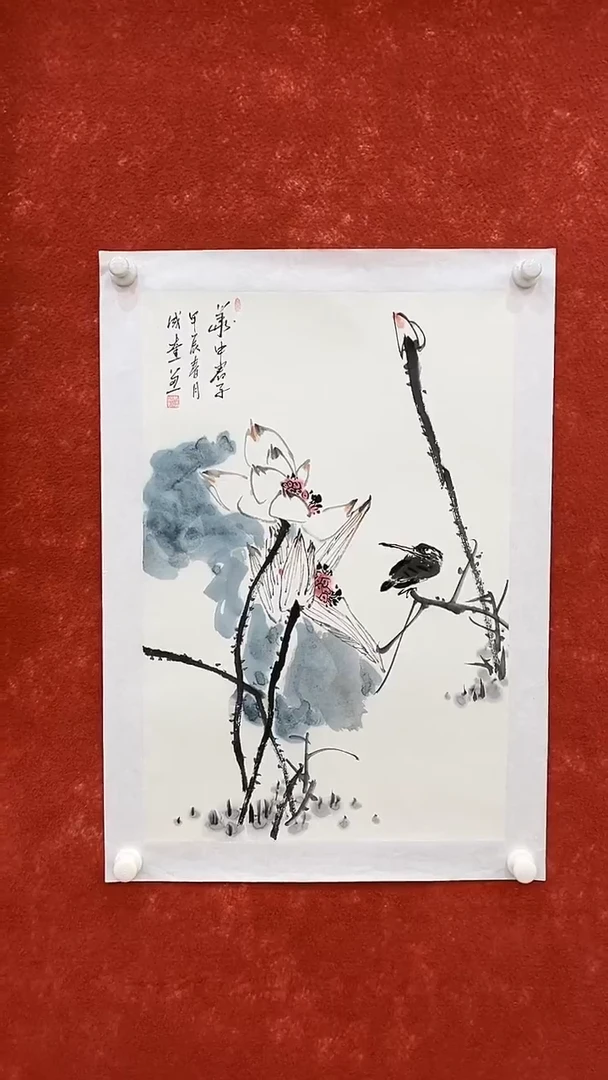 華中君子
甲辰春月
成奎